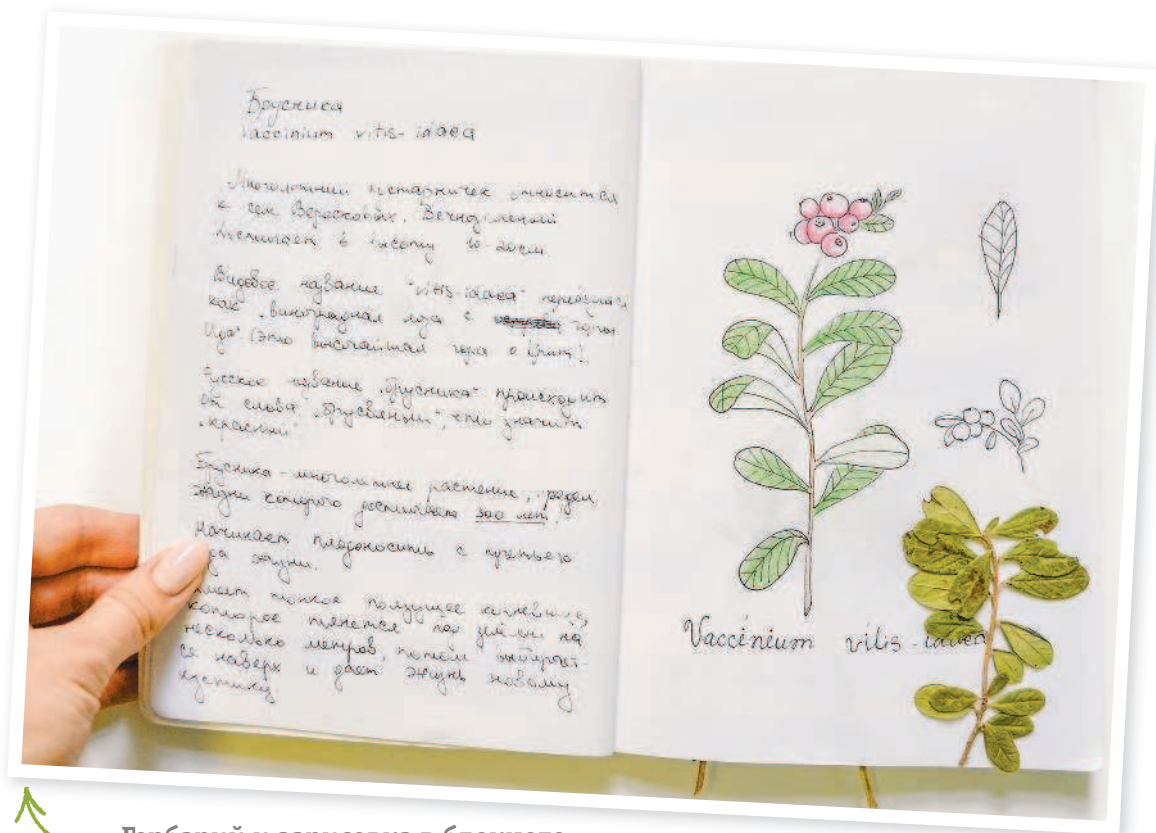 Брусника
Vaccinium vitis-idaea
Многолетний кустарничек относится
к сем. Вересковых. Вечнозеленый
Достигает в высоту 10-20см.
Видовое название "vitis-idaea"
как "виноградная лоза с горы
Ида" (это высочайшая гора о. Крит).
Русское название "брусника" происходит
от слова "брусвяный", что значит
"красный"
Брусника - многолетнее растение,
жизни которого достигает 300 лет.
Начинает плодоносить с третьего
года жизни.
Имеет тонкое ползущее корневище,
которое тянется под землей на
несколько метров, потом выбирает-
ся наверх и дает жизнь новому
кустику.
Vaccinium vitis-idaea
Гербарий и зарисовка в блокноте